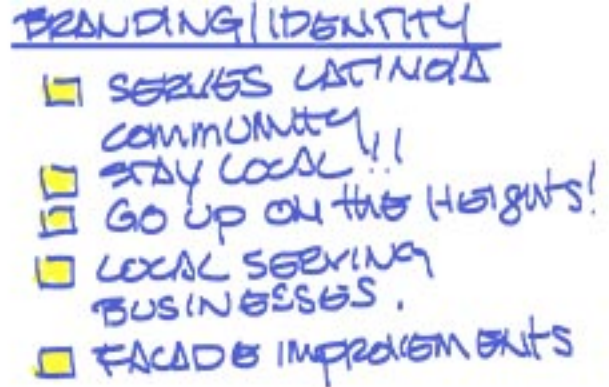 BRANDING/IDENTITY
SERVES LATINO/A
COMMUNITY
STAY LOCAL!!
GO UP ON THE HEIGHTS!
LOCAL SERVING
BUSINESSES.
FACADE IMPROVEMENTS